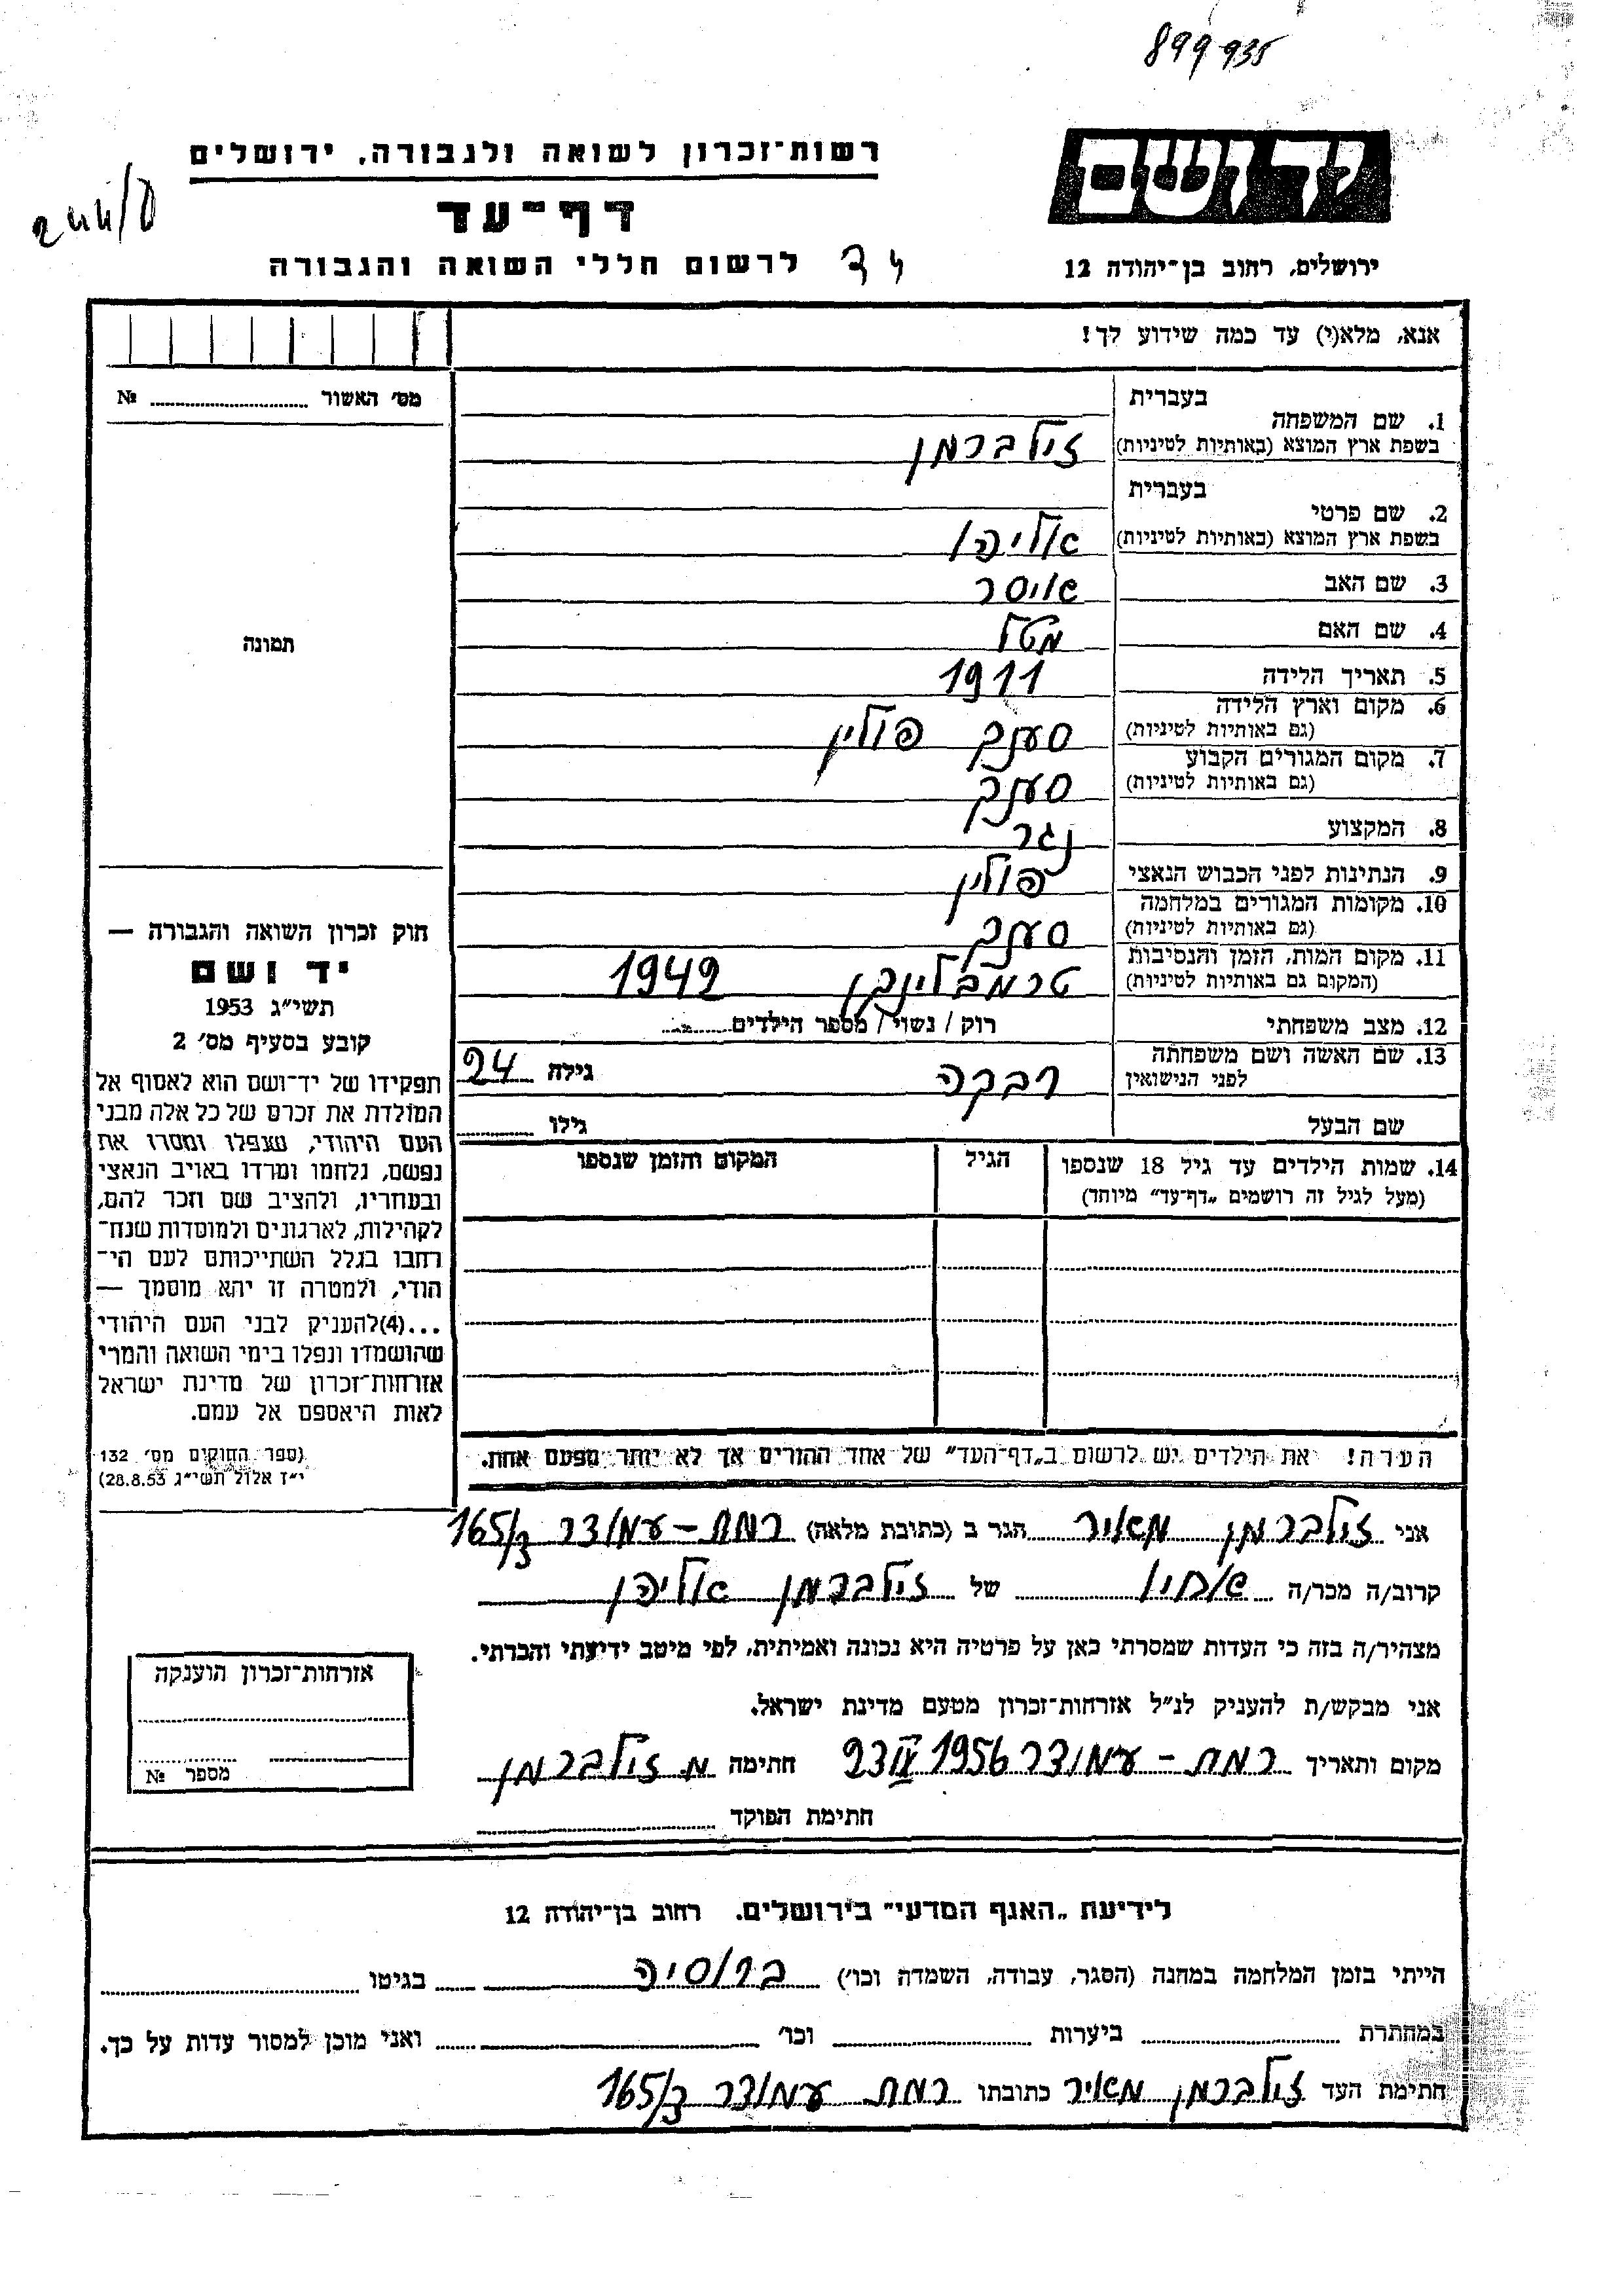 899935
רשות־זכרון לשואה ולגבורה, ירושלים
יד ושם
דף־עד
לרשום חללי השואה והגבורה
ירושלים, רחוב בן־יהודה 12
אנא, מלא(י) עד כמה שידוע לך!
מס׳ האשור № 
1. שם המשפחה
בעברית
בשפת ארץ המוצא (באותיות לטיניות) זילברמן
2. שם פרטי
בעברית
בשפת ארץ המוצא (באותיות לטיניות) אליהו
3. שם האב איסר
4. שם האם מטל
5. תאריך הלידה 1911
6. מקום וארץ הלידה
(גם באותיות לטיניות) פולין
7. מקום המגורים הקבוע
(גם באותיות לטיניות)
8. המקצוע נגר
9. הנתינות לפני הכבוש הנאצי פולין
10. מקומות המגורים במלחמה
(גם באותיות לטיניות)
11. מקום המות, הזמן והנסיבות
(המקום גם באותיות לטיניות) טרמבלינקן 1942
12. מצב משפחתי רוק / נשוי / מספר הילדים
13. שם האשה ושם משפחתה
לפני הנישואין רבקה גילה 24
שם הבעל גילו
14. שמות הילדים עד גיל 18 שנספו הגיל המקום והזמן שנספו
(מעל לגיל זה רושמים „דף־עד״ מיוחד)
הערה! את הילדים יש לרשום ב„דף־העד״ של אחד ההורים אך לא יותר מפעם אחת.
תמונה
חוק זכרון השואה והגבורה —
יד ושם
תשי״ג 1953
קובע בסעיף מס׳ 2
תפקידו של יד־ושם הוא לאסוף אל
המולדת את זכרם של כל אלה מבני
העם היהודי, שנפלו ומסרו את
נפשם, נלחמו ומרדו באויב הנאצי
ובעוזריו, ולהציב שם וזכר להם,
לקהילות, לארגונים ולמוסדות שנח־
רבו בגלל השתייכותם לעם הי־
הודי, ולמטרה זו יהא מוסמך —
...(4)להעניק לבני העם היהודי
שהושמדו ונפלו בימי השואה והמרי
אזרחות־זכרון של מדינת ישראל
לאות היאספם אל עמם.
(ספר החוקים מס׳ 132
י״ז אלול תשי״ג 28.8.53)
אני זילברמן מאיר הגר ב (כתובת מלאה) רמת-עמידר 165/ג
קרוב/ה מכר/ה אחיו של זילברמן אליהו
מצהיר/ה בזה כי העדות שמסרתי כאן על פרטיה היא נכונה ואמיתית, לפי מיטב ידיעתי והכרתי.
אני מבקש/ת להעניק לנ״ל אזרחות־זכרון מטעם מדינת ישראל.
מקום ותאריך רמת-עמידר 1956 חתימה מ. זילברמן
חתימת הפוקד
אזרחות־זכרון הוענקה
מספר №
לידיעת „האגף המדעי״ בירושלים. רחוב בן־יהודה 12
הייתי בזמן המלחמה במחנה (הסגר, עבודה, השמדה וכו׳) ברוסיה בגיטו
במחתרת ביערות וכו׳ ואני מוכן למסור עדות על כך.
חתימת העד זילברמן מאיר כתובתו רמת עמידר 165/ג